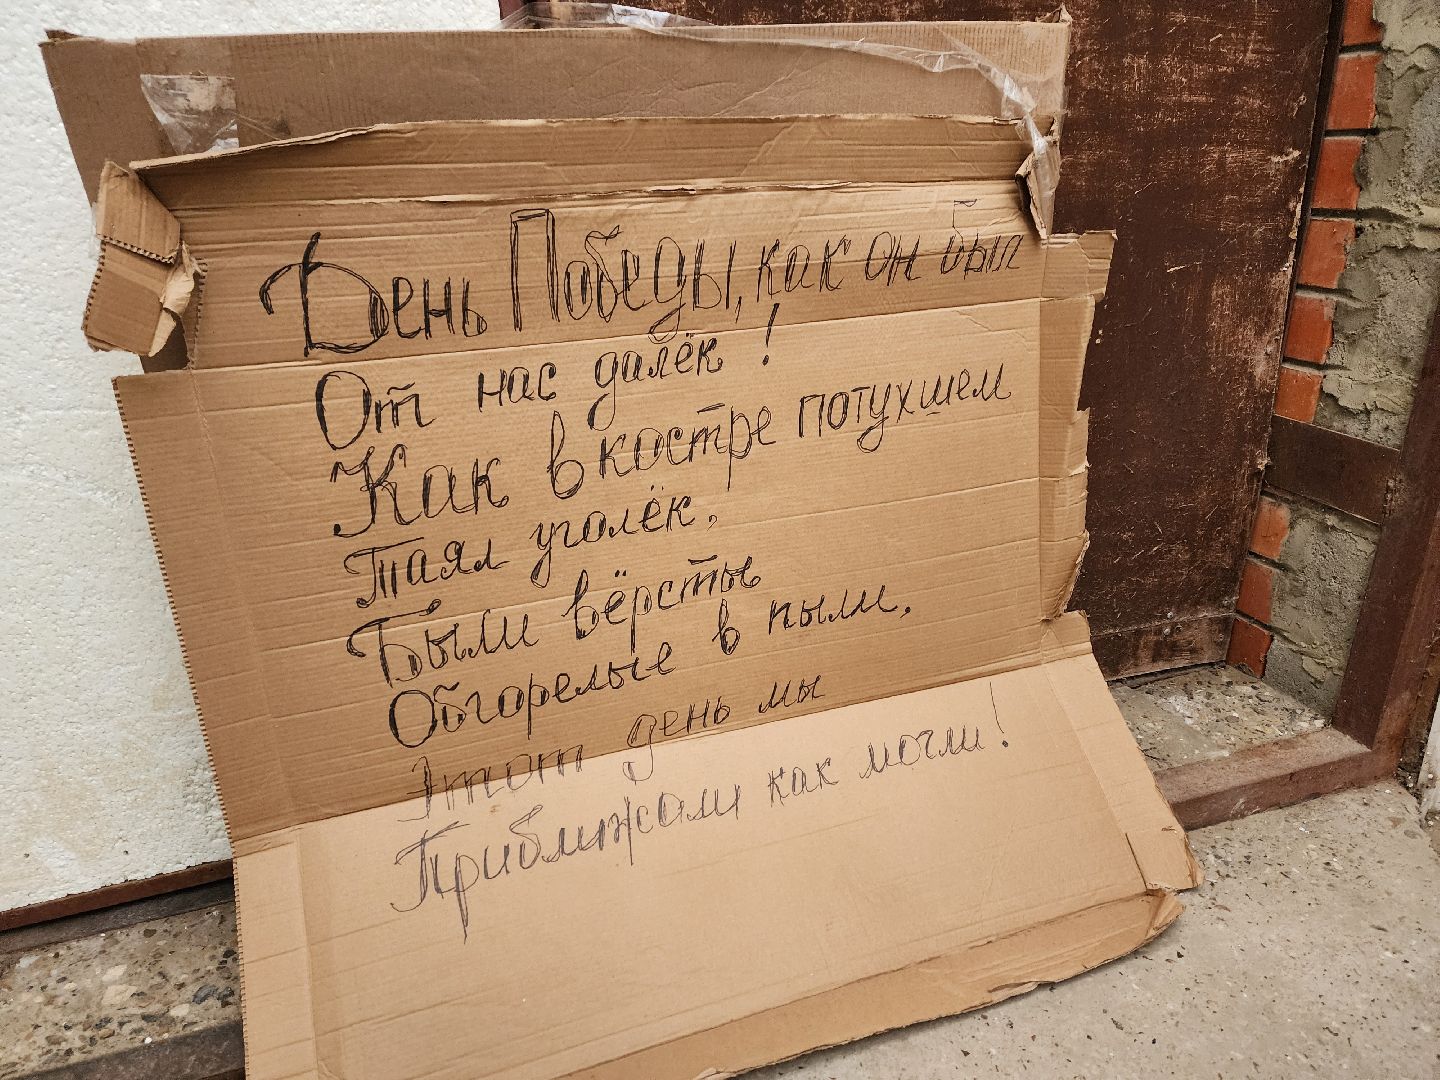 День Победы, как он был
От нас далёк!
Как в костре потухшем
Таял уголёк.
Были вёрсты
Обгорелые в пыли,
Этот день мы
Приближали как могли!